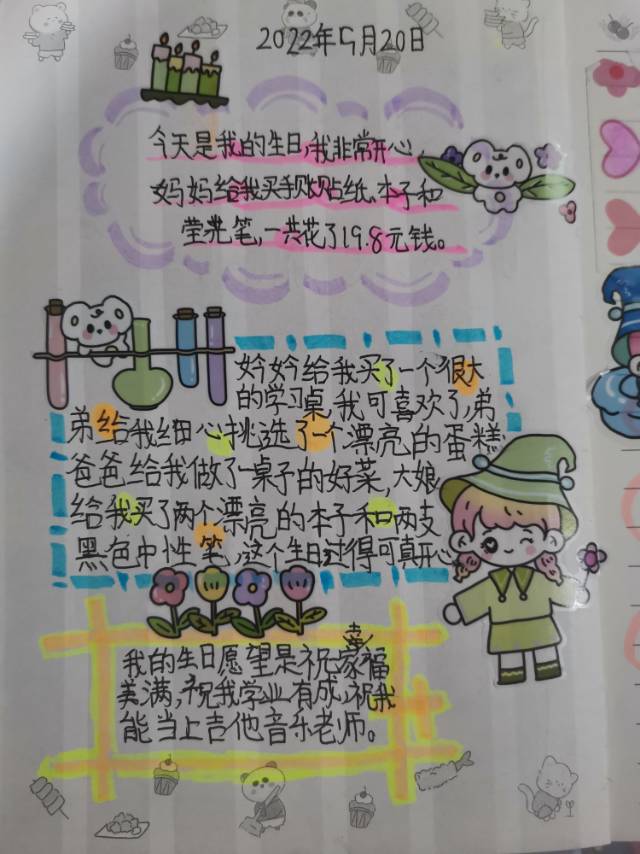 2022年5月20日
今天是我的生日,我非常开心,
妈妈给我买手账贴纸、本子和
莹光笔,一共花了19.8元钱。
妗妗给我买了一个很大
的学习桌,我可喜欢了,弟
弟给我细心挑选了一个漂亮的蛋糕,
爸爸给我做了一桌子的好菜,大娘
给我买了两个漂亮的本子和两支
黑色中性笔,这个生日过得可真开心
我的生日愿望是祝家福
美满,祝我学业有成,祝我
能当上吉他音乐老师。